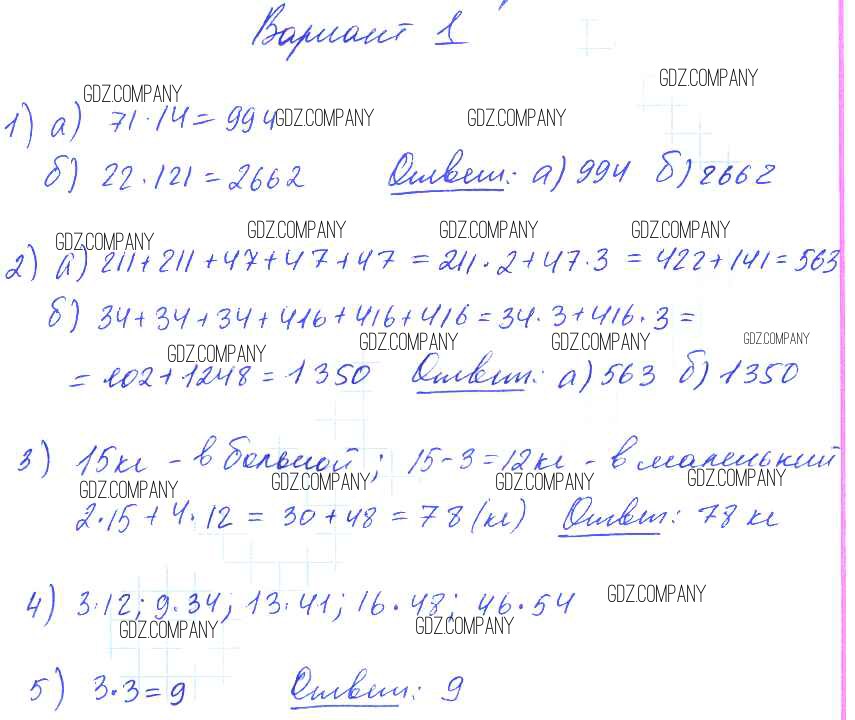 Вариант 1
GDZ.COMPANY
GDZ.COMPANY
1) а) 71·14 = 994 GDZ.COMPANY GDZ.COMPANY
б) 22·121 = 2662 Ответ: а) 994 б) 2662
GDZ.COMPANY GDZ.COMPANY GDZ.COMPANY GDZ.COMPANY
2) а) 211+211+47+47+47 = 211·2+47·3 = 422+141=563
б) 34+34+34+416+416+416=34·3+416·3=
GDZ.COMPANY GDZ.COMPANY GDZ.COMPANY GDZ.COMPANY
= 102+1248=1350 Ответ: а) 563 б) 1350
3) 15кг - в большой; 15-3=12кг - в маленький
GDZ.COMPANY GDZ.COMPANY GDZ.COMPANY GDZ.COMPANY
2·15+4·12 = 30+48 = 78 (кг) Ответ: 78 кг
4) 3·12; 9·34; 13·41; 16·48; 46·54 GDZ.COMPANY
GDZ.COMPANY GDZ.COMPANY
5) 3·3=9 Ответ: 9